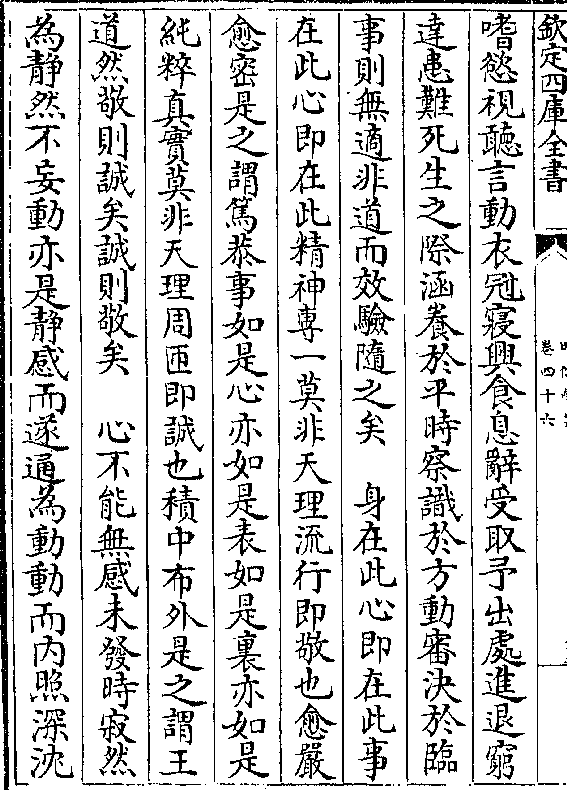 欽定四庫全書
卷四十六
嗜慾視聽言動衣冠寢興食息辭受取予出處進退窮
達患難死生之際涵養於平時察識於方動審決於臨
事則無適非道而效驗隨之矣　身在此心即在此事
在此心即在此精神專一莫非天理流行即敬也愈嚴
愈密是之謂篤恭事如是心亦如是表如是裏亦如是
純粹真實莫非天理周匝即誠也積中布外是之謂王
道然敬則誠矣誠則敬矣　心不能無感未發時寂然
為静然不妄動亦是静感而遂通為動動而内照深沈